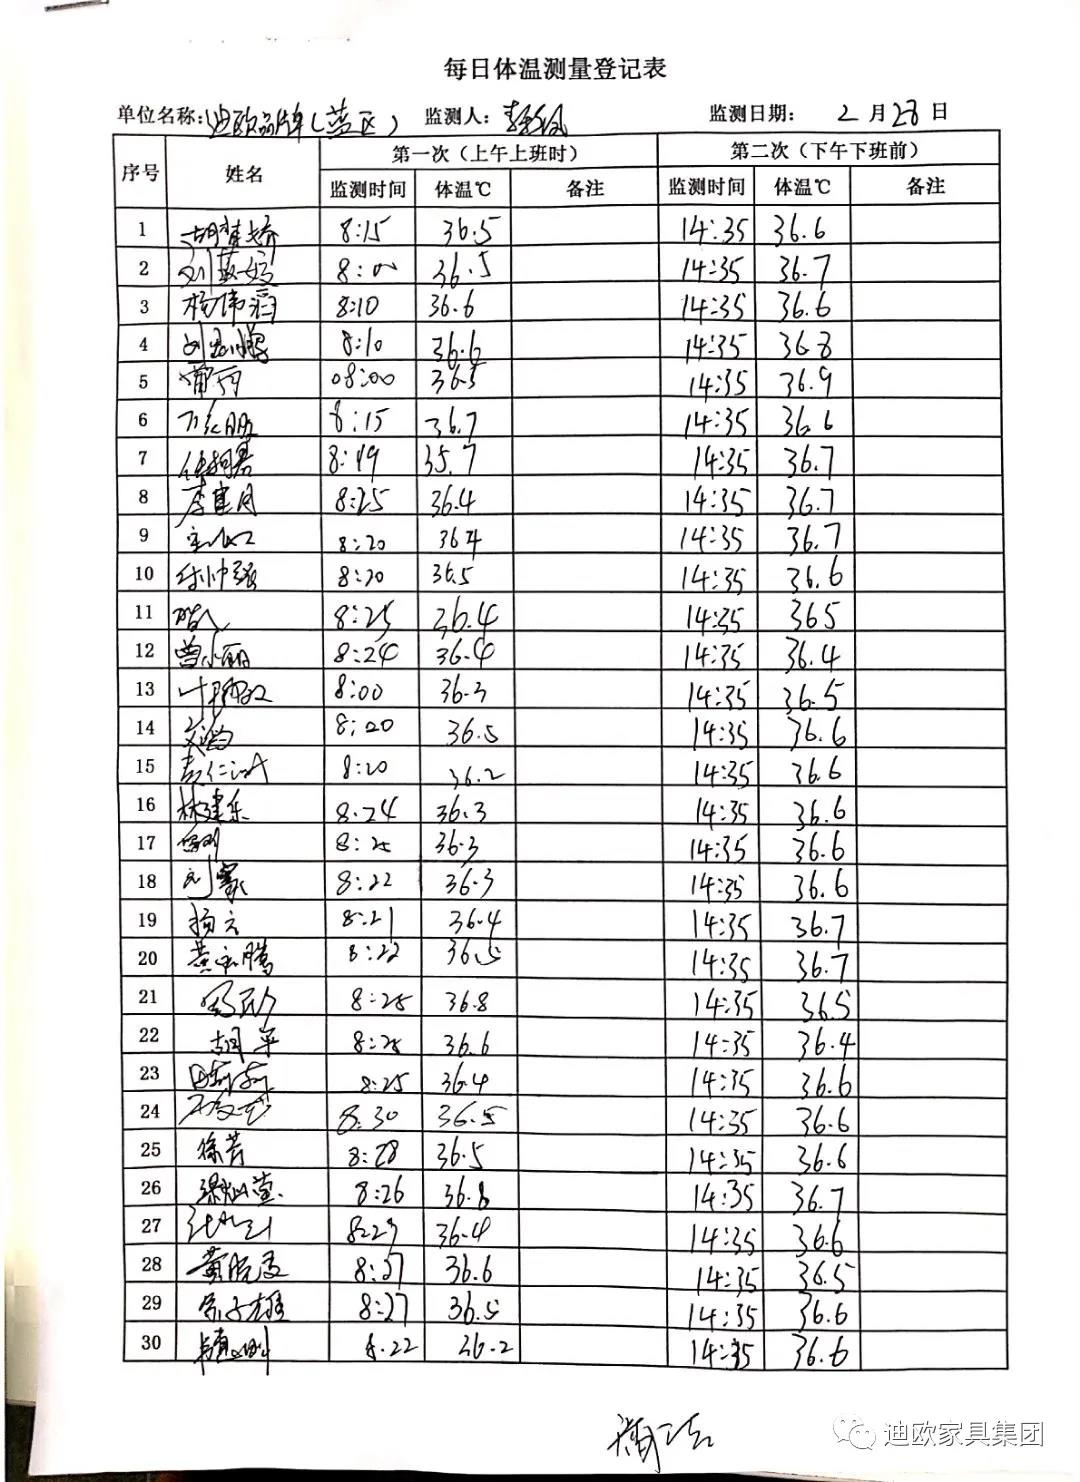 每日体温测量登记表
单位名称: 迪欧品牌(蓝区) 监测人: 监测日期: 2月28日
序号 姓名 第一次（上午上班时） 第二次（下午下班前）
监测时间 体温℃ 备注 监测时间 体温℃ 备注
1 胡梦娇 8:15 36.5 14:35 36.6
2 8:00 36.5 14:35 36.7
3 杨伟滔 8:10 36.6 14:35 36.6
4 8:10 36.6 14:35 36.8
5 08:00 36.5 14:35 36.9
6 8:15 36.7 14:35 36.6
7 8:19 35.7 14:35 36.7
8 李建月 8:25 36.4 14:35 36.7
9 8:20 364 14:35 36.7
10 8:20 36.5 14:35 36.6
11 8:25 36.4 14:35 365
12 曾小丽 8:24 36.4 14:35 36.4
13 8:00 36.3 14:35 36.5
14 8:20 36.5 14:35 36.6
15 8:20 36.2 14:35 36.6
16 林建乐 8.24 36.3 14:35 36.6
17 8:25 36.3 14:35 36.6
18 8:22 36.3 14:35 36.6
19 杨云 8:21 36.4 14:35 36.7
20 8:22 36.5 14:35 36.7
21 8:28 36.8 14:35 36.5
22 胡平 8:28 36.6 14:35 36.4
23 8:25 36.4 14:35 36.6
24 8:30 36.5 14:35 36.6
25 徐芳 8:28 36.5 14:35 36.6
26 8:26 36.8 14:35 36.7
27 8:29 36.4 14:35 36.6
28 8:27 36.6 14:35 36.5
29 8:27 36.5 14:35 36.6
30 8.22 36.2 14:35 36.6
迪欧家具集团